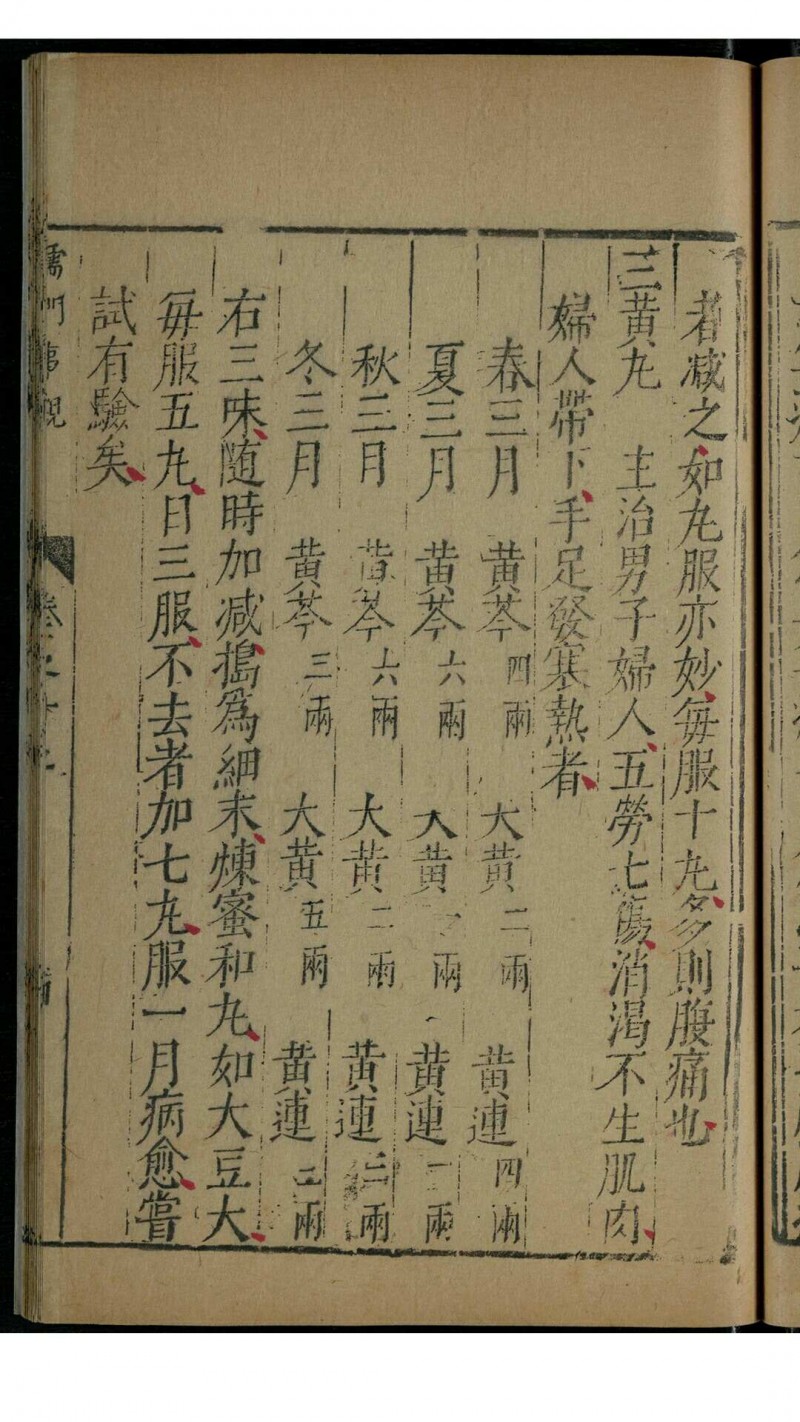 者減之如丸服亦妙毎服十丸多則腹痛也
三黄丸　主治男子婦人五勞七傷消渴不生肌肉
婦人帶下手足發寒熱者
春三月　黄芩四兩　大黄二兩　黄連四兩
夏三月　黄芩六兩　大黄兩　黄連兩
秋三月　黄芩六兩　大黄二兩　黄連三兩
冬三月　黄芩三兩　大黄五兩　黄連二兩
右三味随時加减搗爲細末煉蜜和丸如大豆大
毎服五丸日三服不去者加七丸服一月病愈嘗
試有驗矣
儒門事親